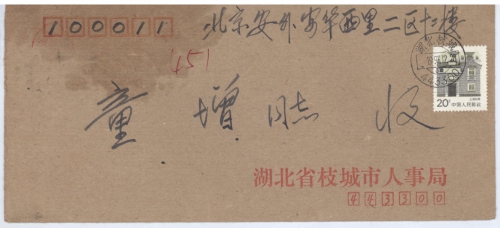 100011
北京安外安华西里二区十二楼
451
童增同志 收
20分 中国人民邮政
湖北省枝城市人事局
443300